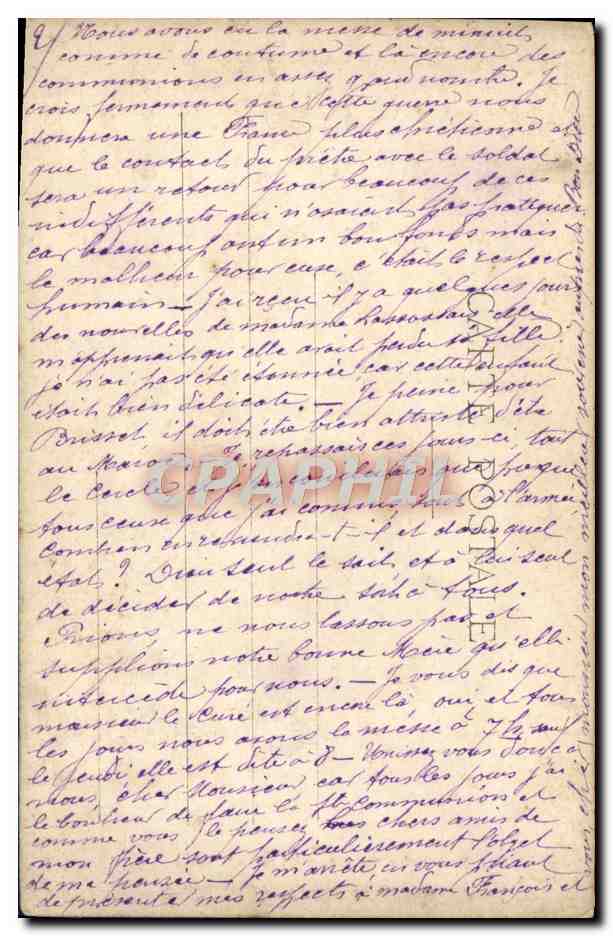 2/ Nous avons eu la messe de minuit
comme de coutume et là encore des
communions en assez grand nombre. Je
crois fermement que cette guerre nous
donnera une France plus chrétienne et
que le contact du prêtre avec le soldat
sera un retour pour beaucoup de ces
indifférents qui n'osaient pas pratiquer
car beaucoup ont un bon fonds mais
le malheur pour eux, c'était le respect
humain — J'ai reçu il y a quelques jours
des nouvelles de madame elle
m'apprenait qu'elle avait perdu sa fille
je n'ai pas été étonnée car cette enfant
était bien délicate. — Je peine pour
Brisset il doit être bien attristé d'être
au Maroc. Je repassais ces jours-ci, tout
le cercle et que presque
tous ceux que j'ai connus sont à l'armée
Combien en reviendra-t-il et dans quel
état? Dieu seul le sait et à lui seul
de décider de notre sort à tous.
Prions, ne nous lassons pas et
supplions notre bonne Mère qu'elle
intercède pour nous. — Je vous dis que
monsieur le Curé est encore là, oui, et tous
les jours nous avons la messe à 7 h sauf
le jeudi, elle est dite à 8 — Unissez vous donc à
nous, cher Monsieur, car tous les jours j'ai
le bonheur de faire la Ste communion et
comme vous le pensez les chers amis de
mon frère sont particulièrement l'objet
de ma pensée — Je m'arrête en vous priant
de présenter mes respects à madame François et
vous, cher monsieur mon meilleur souvenir
CARTE POSTALE
CPAPHIL